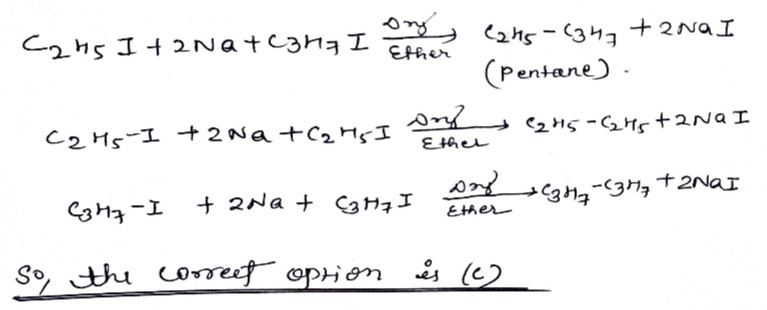 C2H5 I + 2Na + C3H7 I Dry Ether → C2H5 - C3H7 + 2NaI
(Pentane).
C2H5-I + 2Na + C2H5I Dry Ether → C2H5 - C2H5 + 2NaI
C3H7-I + 2Na + C3H7I Dry Ether → C3H7-C3H7 + 2NaI
So, the correct option is (c)